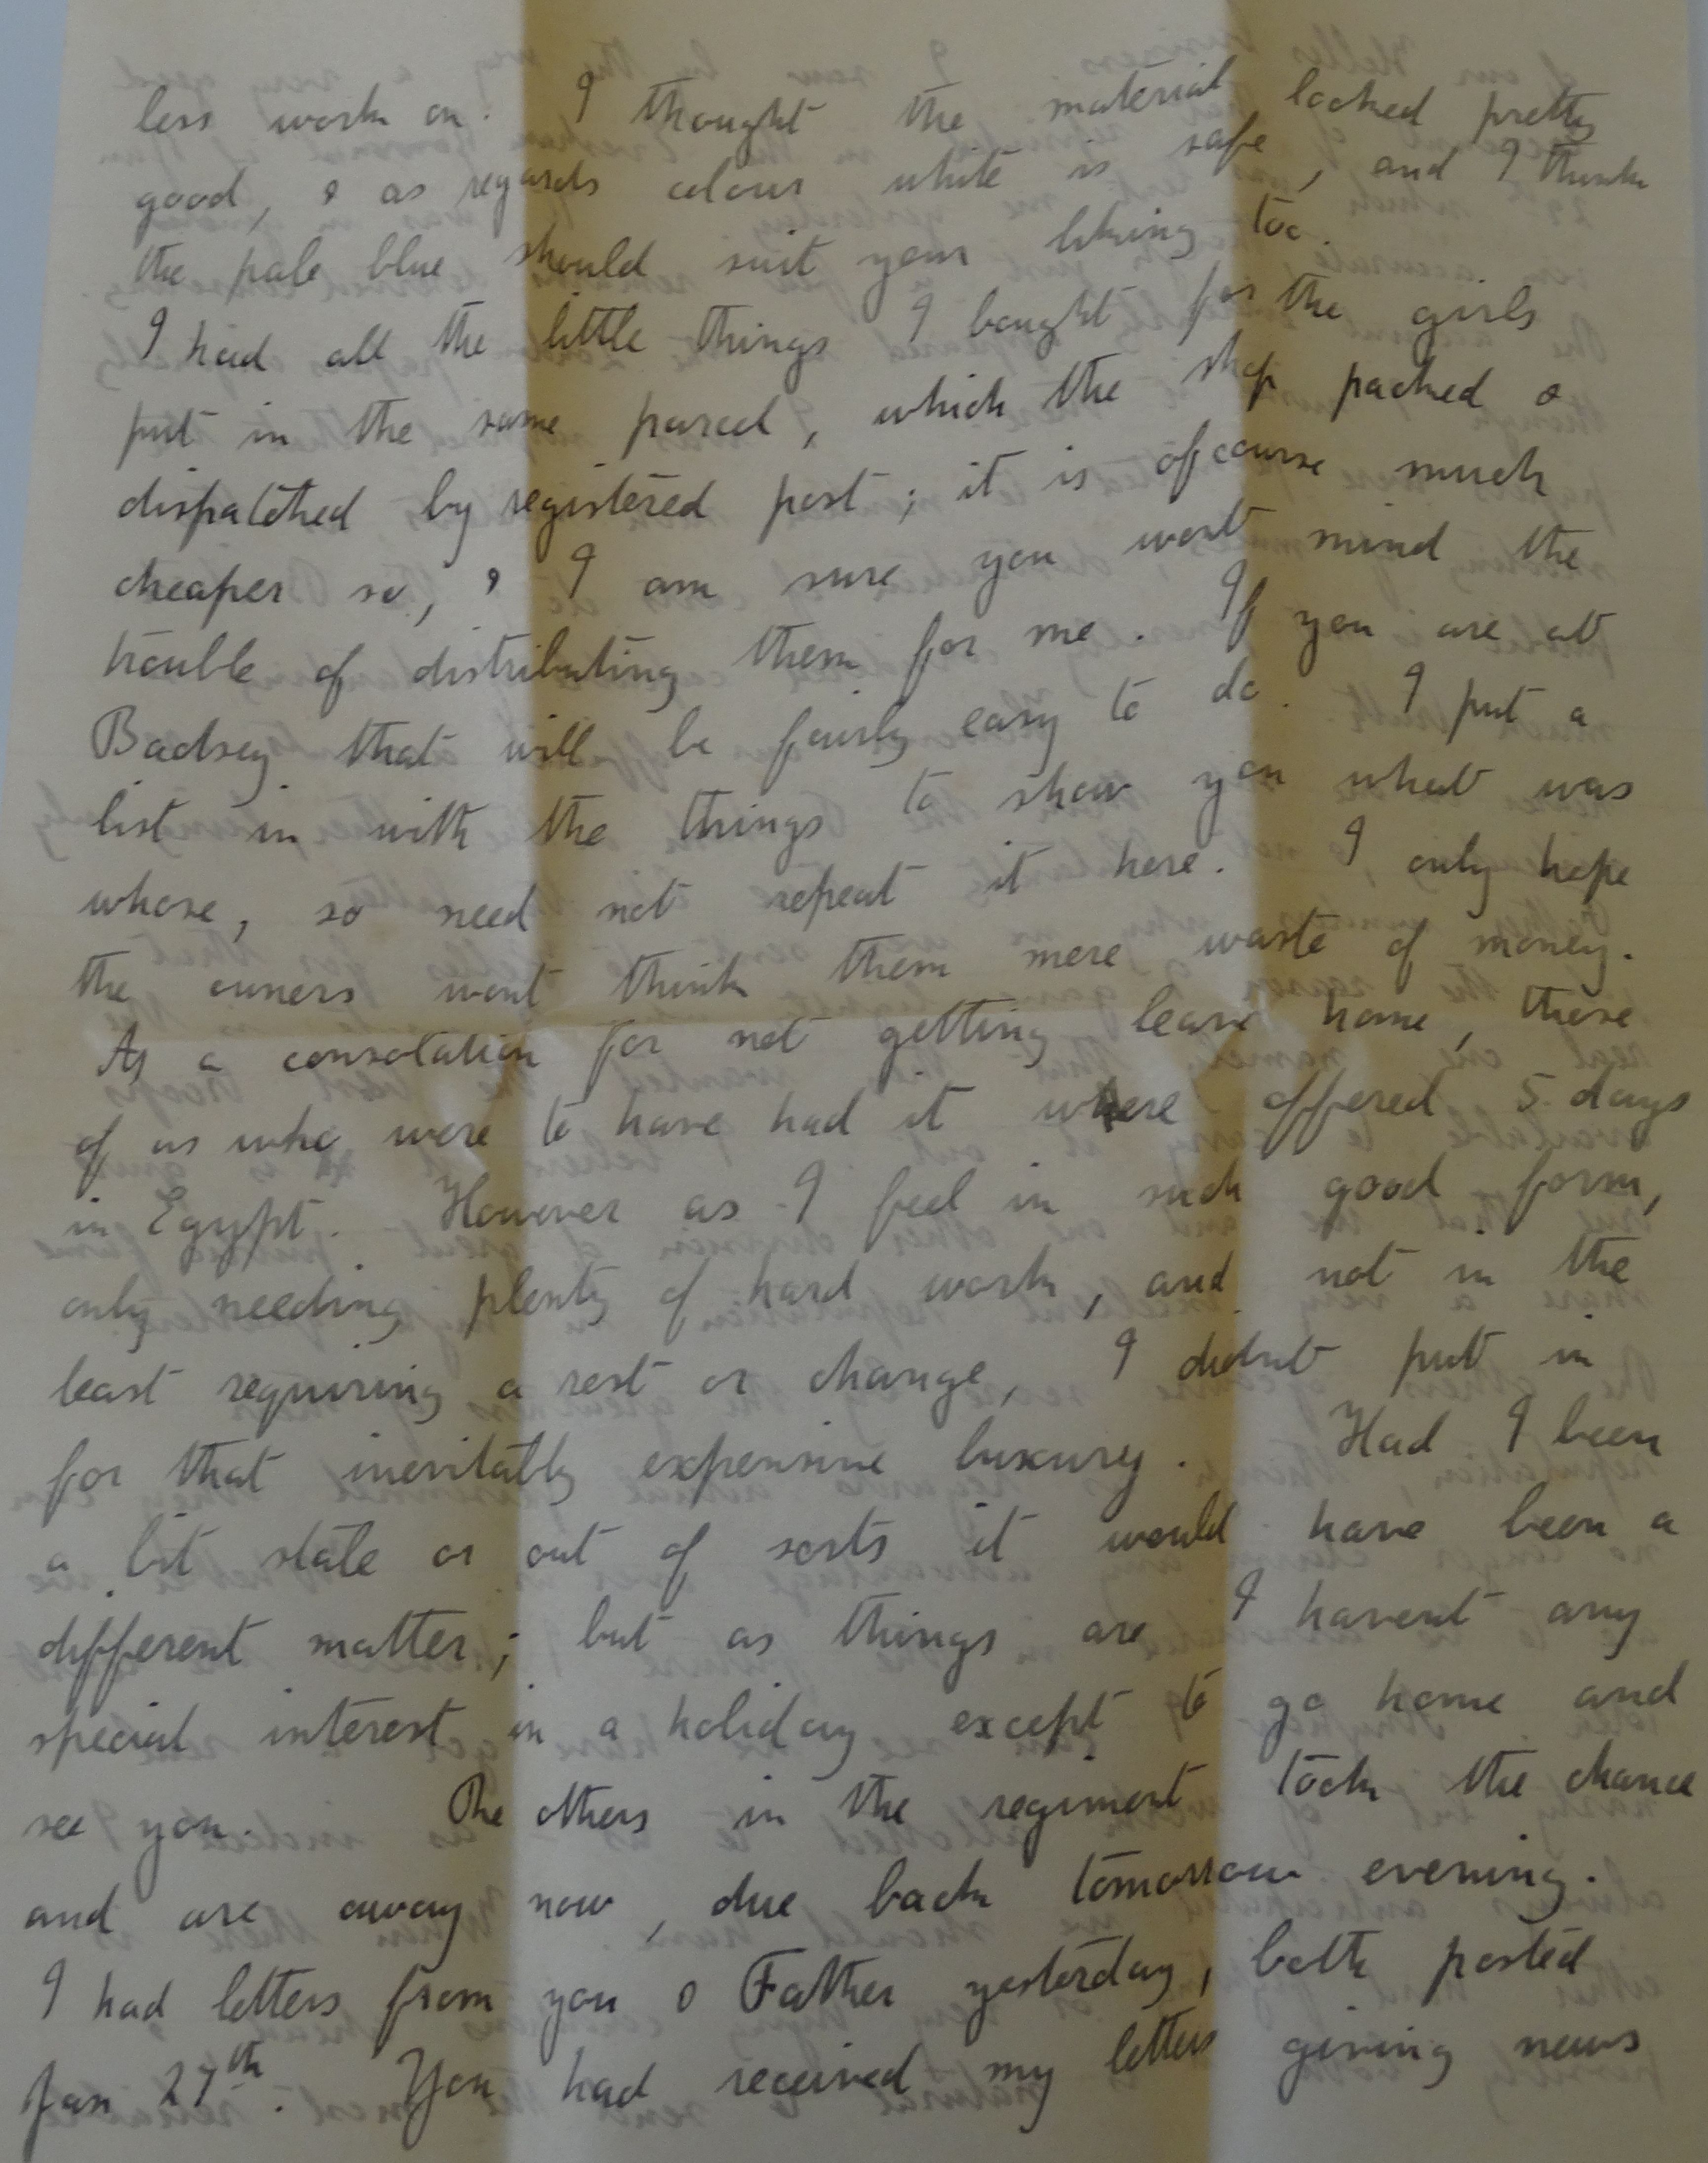 less work on. I thought the material looked pretty
good, & as regards colour white is safe, and I think
the pale blue should suit your liking too.
I had all the little things I bought for the girls
put in the same parcel, which the shop packed &
dispatched by registered post; it is ofcourse much
cheaper so, & I am sure you wont mind the
trouble of distributing them for me. If you are at
Badsey that will be fairly easy to do. I put a
list in with the things to show you what was
whose, so need not repeat it here. I only hope
the owners wont think them mere waste of money.
As a consolation for not getting leave home, those
of us who were to have had it were offered 5 days
in Egypt. However as I feel in such good form,
only needing plenty of hard work, and not in the
least requiring a rest or change, I didnt put in
for that inevitably expensive luxury. Had I been
a bit stale or out of sorts it would have been a
different matter; but as things are I havent any
special interest in a holiday except to go home and
see you. The others in the regiment took the chance
and are away now, due back tomorrow evening.
I had letters from you & Father yesterday, both posted
Jan 27th. You had received my letters giving news